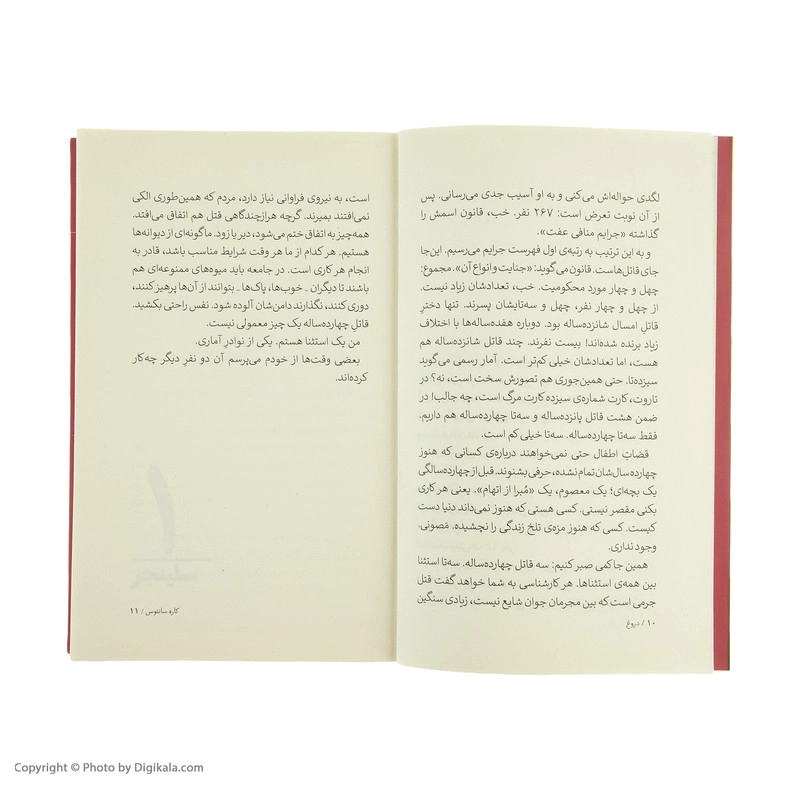 لگدی حواله‌اش می‌کنی و به او آسیب جدی می‌رسانی. پس
از آن نوبت تعرض است: ۲۶۷ نفر. خب، قانون اسمش را
گذاشته «جرایم منافی عفت».
و به این ترتیب به رتبه‌ی اول فهرست جرایم می‌رسیم. این‌جا
جای قاتل‌هاست. قانون می‌گوید: «جنایت و انواع آن». مجموع:
چهل و چهار مورد محکومیت. خب، تعدادشان زیاد نیست.
از چهل و چهار نفر، چهل و سه‌تایشان پسرند. تنها دخترِ
قاتل امسال شانزده‌ساله بود. دوباره هفده‌ساله‌ها با اختلاف
زیاد برنده شده‌اند! بیست نفرند. چند قاتل شانزده‌ساله هم
هست، اما تعدادشان خیلی کم‌تر است. آمار رسمی می‌گوید
سیزده‌تا. حتی همین‌جوری هم تصورش سخت است، نه؟ در
تاروت، کارت شماره‌ی سیزده کارت مرگ است، چه جالب! در
ضمن هشت قاتل پانزده‌ساله و سه‌تا چهارده‌ساله هم داریم.
فقط سه‌تا چهارده‌ساله. سه‌تا خیلی کم است.
قضات اطفال حتی نمی‌خواهند درباره‌ی کسانی که هنوز
چهارده سال‌شان تمام نشده، حرفی بشنوند. قبل از چهارده‌سالگی
یک بچه‌ای؛ یک معصوم، یک «مُبرا از اتهام». یعنی هر کاری
بکنی مقصر نیستی. کسی هستی که هنوز نمی‌داند دنیا دست
کیست. کسی که هنوز مزه‌ی تلخ زندگی را نچشیده. مَصونی.
وجود نداری.
همین جا کمی صبر کنیم: سه قاتل چهارده‌ساله. سه‌تا استثنا
بین همه‌ی استثناها. هر کارشناسی به شما خواهد گفت قتل
جرمی است که بین مجرمان جوان شایع نیست، زیادی سنگین
۱۰ / دروغ
است، به نیروی فراوانی نیاز دارد، مردم که همین‌طوری الکی
نمی‌افتند بمیرند. گرچه هرازچندگاهی قتل هم اتفاق می‌افتد.
همه‌چیز به اتفاق ختم می‌شود، دیر یا زود. ما گونه‌ای از دیوانه‌ها
هستیم. هر کدام از ما هر وقت شرایط مناسب باشد، قادر به
انجام هر کاری است. در جامعه باید میوه‌های ممنوعه‌ای هم
باشند تا دیگران ـ خوب‌ها، پاک‌ها ـ بتوانند از آن‌ها پرهیز کنند،
دوری کنند، نگذارند دامن‌شان آلوده شود. نفس راحتی بکشید.
قاتلِ چهارده‌ساله یک چیز معمولی نیست.
من یک استثنا هستم. یکی از نوادرِ آماری.
بعضی وقت‌ها از خودم می‌پرسم آن دو نفرِ دیگر چه‌کار
کرده‌اند.
کاره سانتوس / ۱۱
Copyright © Photo by Digikala.com